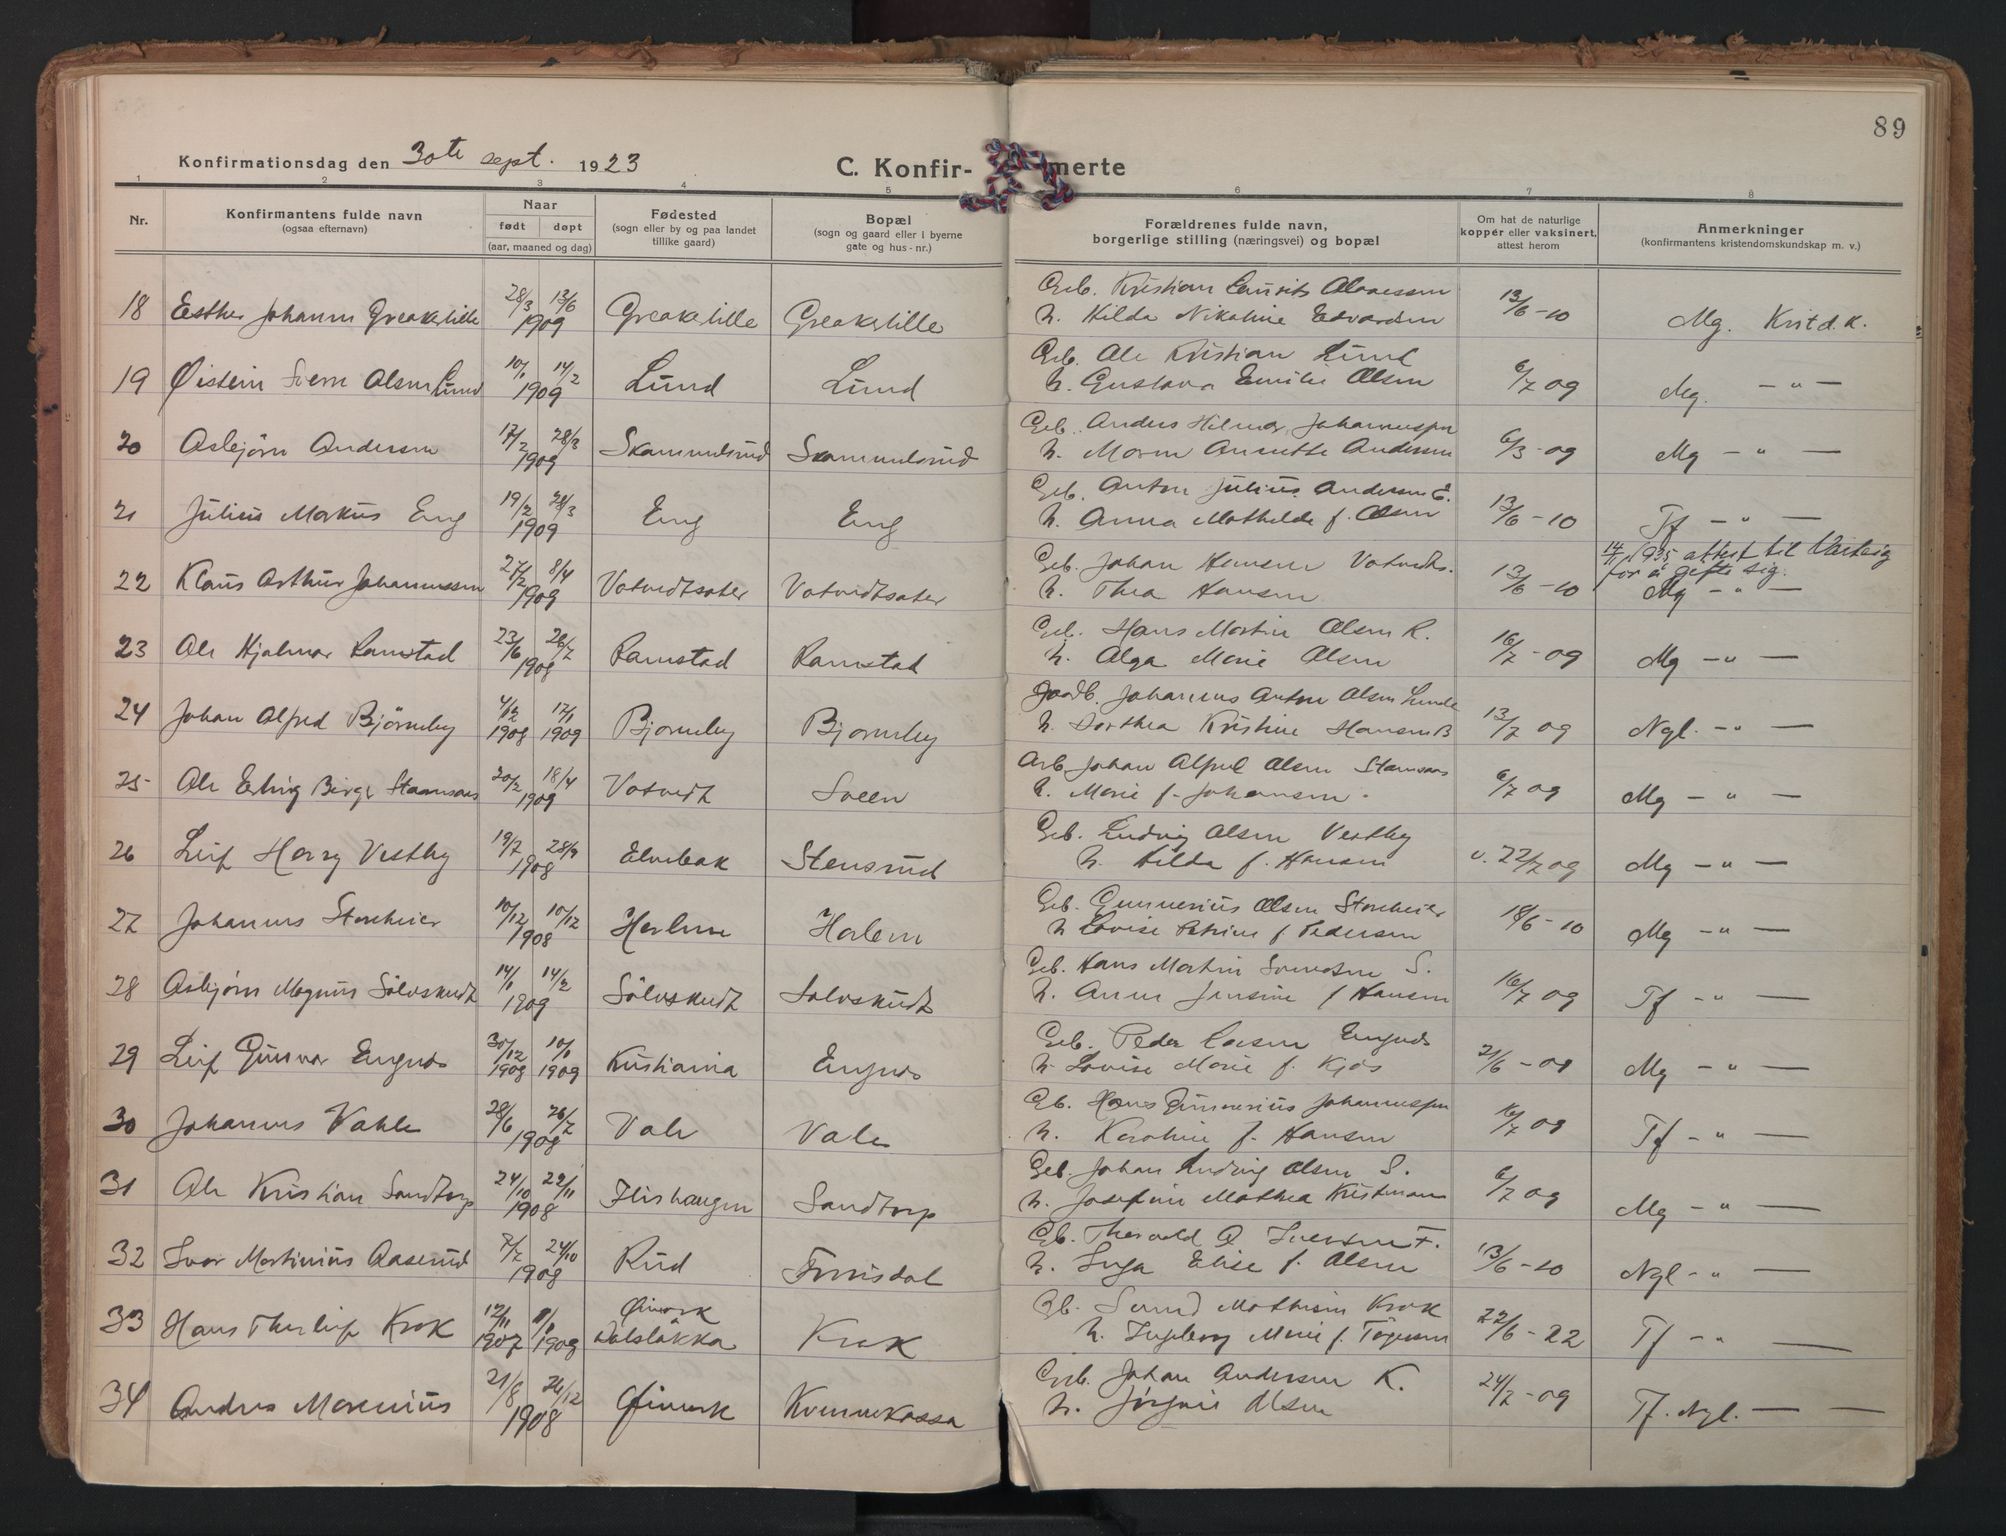 89
Konfirmationsdag den 30te sept. 1923
C. Konfir- merte
1 2 3 4 5 6 7 8
Nr.
Konfirmantens fulde navn
(ogsaa efternavn)
Naar
født døpt
(aar, maaned og dag)
Fødested
(sogn eller by og paa landet
tillike gaard)
Bopæl
(sogn og gaard eller i byerne
gate og hus-nr.)
Forældrenes fulde navn,
borgerlige stilling (næringsvei) og bopæl
Om hat de naturlige
kopper eller vaksinert,
attest herom
Anmerkninger
(konfirmantens kristendomskundskap m. v.)
Gb. Kristian Laurits
18 Esther Johanne Greakslille 28/3 13/6 1909 Greakslille Greakslille
h. Hilda Nikoline Edvardsen 13/6-10 Mg. Krist.d.k.
Gb. Ole Kristian Lund
19 Øistein Svern Olsen Lund 10/1 14/2 1909 Lund Lund
h. Gustava Emilie Olsen 6/7 09 Mg. — " —
Gb. Anders Hilmar Johannespn
20 Asbjørn Andersen 17/2 28/3 1909 Skammelsrud Skammelsrud
h. Maren Annette Andersen 6/3-09 Mg — " —
Gb. Anton Julius Andersen E.
21 Julius Markus Eng 19/2 28/3 1909 Eng Eng
h. Anna Mathilde f. Olsen 13/6-10 Tf — " —
14/11 1935 attest til Varteig
for å gifte sig.
Gb. Johan Hansen Votvedts.
22 Klaus Arthur Johannessen 27/2 8/4 1909 Votvedtsæter Votvedtsæter
h. Thea Hansen 13/6-10 Mg — " —
Gb. Hans Martin Olsen R.
23 Ole Hjalmar Ramstad 23/6 26/7 1908 Ramstad Ramstad
h. Olga Marie Olsen 16/7-09 Mg — " —
Gaardb. Johannes Anton Olsen Lunde
24 Johan Alfred Bjørneby 4/12 1908 17/1 1909 Bjørneby Bjørneby
h. Dorthea Kristine Hansen B 13/7 09 Ngl. — " —
Arb. Johan Alfred Olsen Stamsaas
25 Ole Erling Birger Stamsaas 20/2 18/4 1909 Votvedt Sveen
h. Marie f. Johansen. 6/7 09 Mg — " —
Gb. Ludvig Olsen Vestby
26 Leif Harry Vestby 19/7 28/9 1908 Elvebak Stensrud
h. Hilda f. Hansen v. 22/7 09 Mg — " —
Gb. Gunnerius Olsen Storeheier
27 Johannes Storeheier 10/12 10/12 1908 Harlem Harlem
h Lovise Petrine f Pedersen 18/6-10 Mg — " —
Gb. Hans Martin Svendsen S.
28 Asbjørn Magnus Sölvskudt 14/1 14/2 1909 Sölvskudt Sølvskudt
h. Anne Jensine f Hansen 16/7 09 Tf — " —
Gb. Peder Larsen Engnæs
29 Leif Gunvar Engnæs 30/12 1908 10/1 1909 Kristiania Engnæs
h. Lovise Marie f. Kjös 21/6-09 Mg — " —
Gb. Hans Gunnerius Johannespn
30 Johannes Vahle 28/6 26/7 1908 Vale Vale
h. Karoline f. Hansen 16/7 09 Tf — " —
Gb. Johan Ludvig Olsen S.
31 Ole Kristian Sandtorp 24/10 29/11 1908 Flishaugen Sandtorp
h. Josefine Mathea Kristiansen 6/7 09 Mg — " —
Gb. Thorvald O Iversen F.
32 Ivar Martinius Aaserud 7/7 24/10 1908 Rud
h. Inga Elise f. Olsen 13/6-10 Ngl — " —
Gb. Mathisen Krok
33 Hans Thorleif Krok 12/11 1907 1/1 1908 Øimark Krok
h. Ingeborg Marie f. 22/6-22 Tf — " —
Gb. Johan Andersen K.
34 Anders Marenius 21/8 26/12 1908 Øimark Kvernekassa
h. Jørgine Olsen 24/7-09 Tf. Ngl. — —